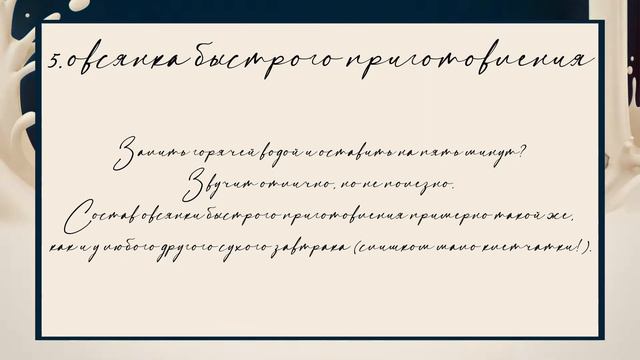 5. овсянка быстрого приготовления
Залить горячей водой и оставить на пять минут?
Звучит отлично, но не полезно.
Состав овсянки быстрого приготовления примерно такой же,
как и у любого другого сухого завтрака (слишком мало клетчатки!).